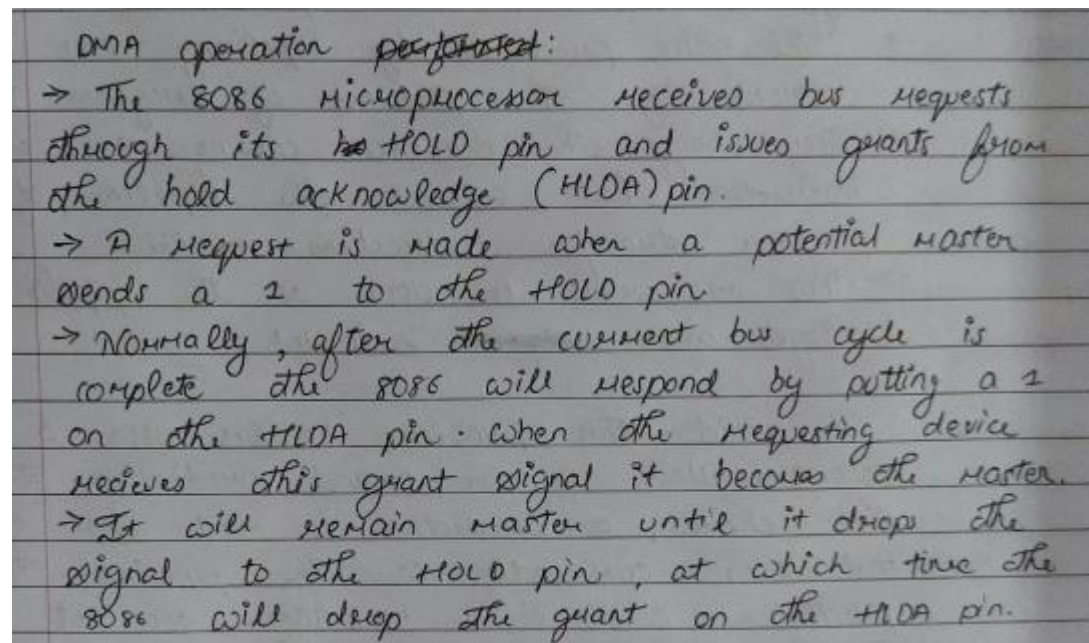 DMA operation performed:
→ The 8086 microprocessor received bus requests
through its HOLD pin and issues grants from
the hold acknowledge (HLDA) pin.
→ A request is made when a potential master
sends a 1 to the HOLD pin
→ Normally, after the current bus cycle is
complete the 8086 will respond by putting a 1
on the HLDA pin. when the requesting device
recieves this grant signal it becomes the master.
→ It will remain master until it drops the
signal to the HOLD pin, at which time the
8086 will drop the grant on the HLDA pin.